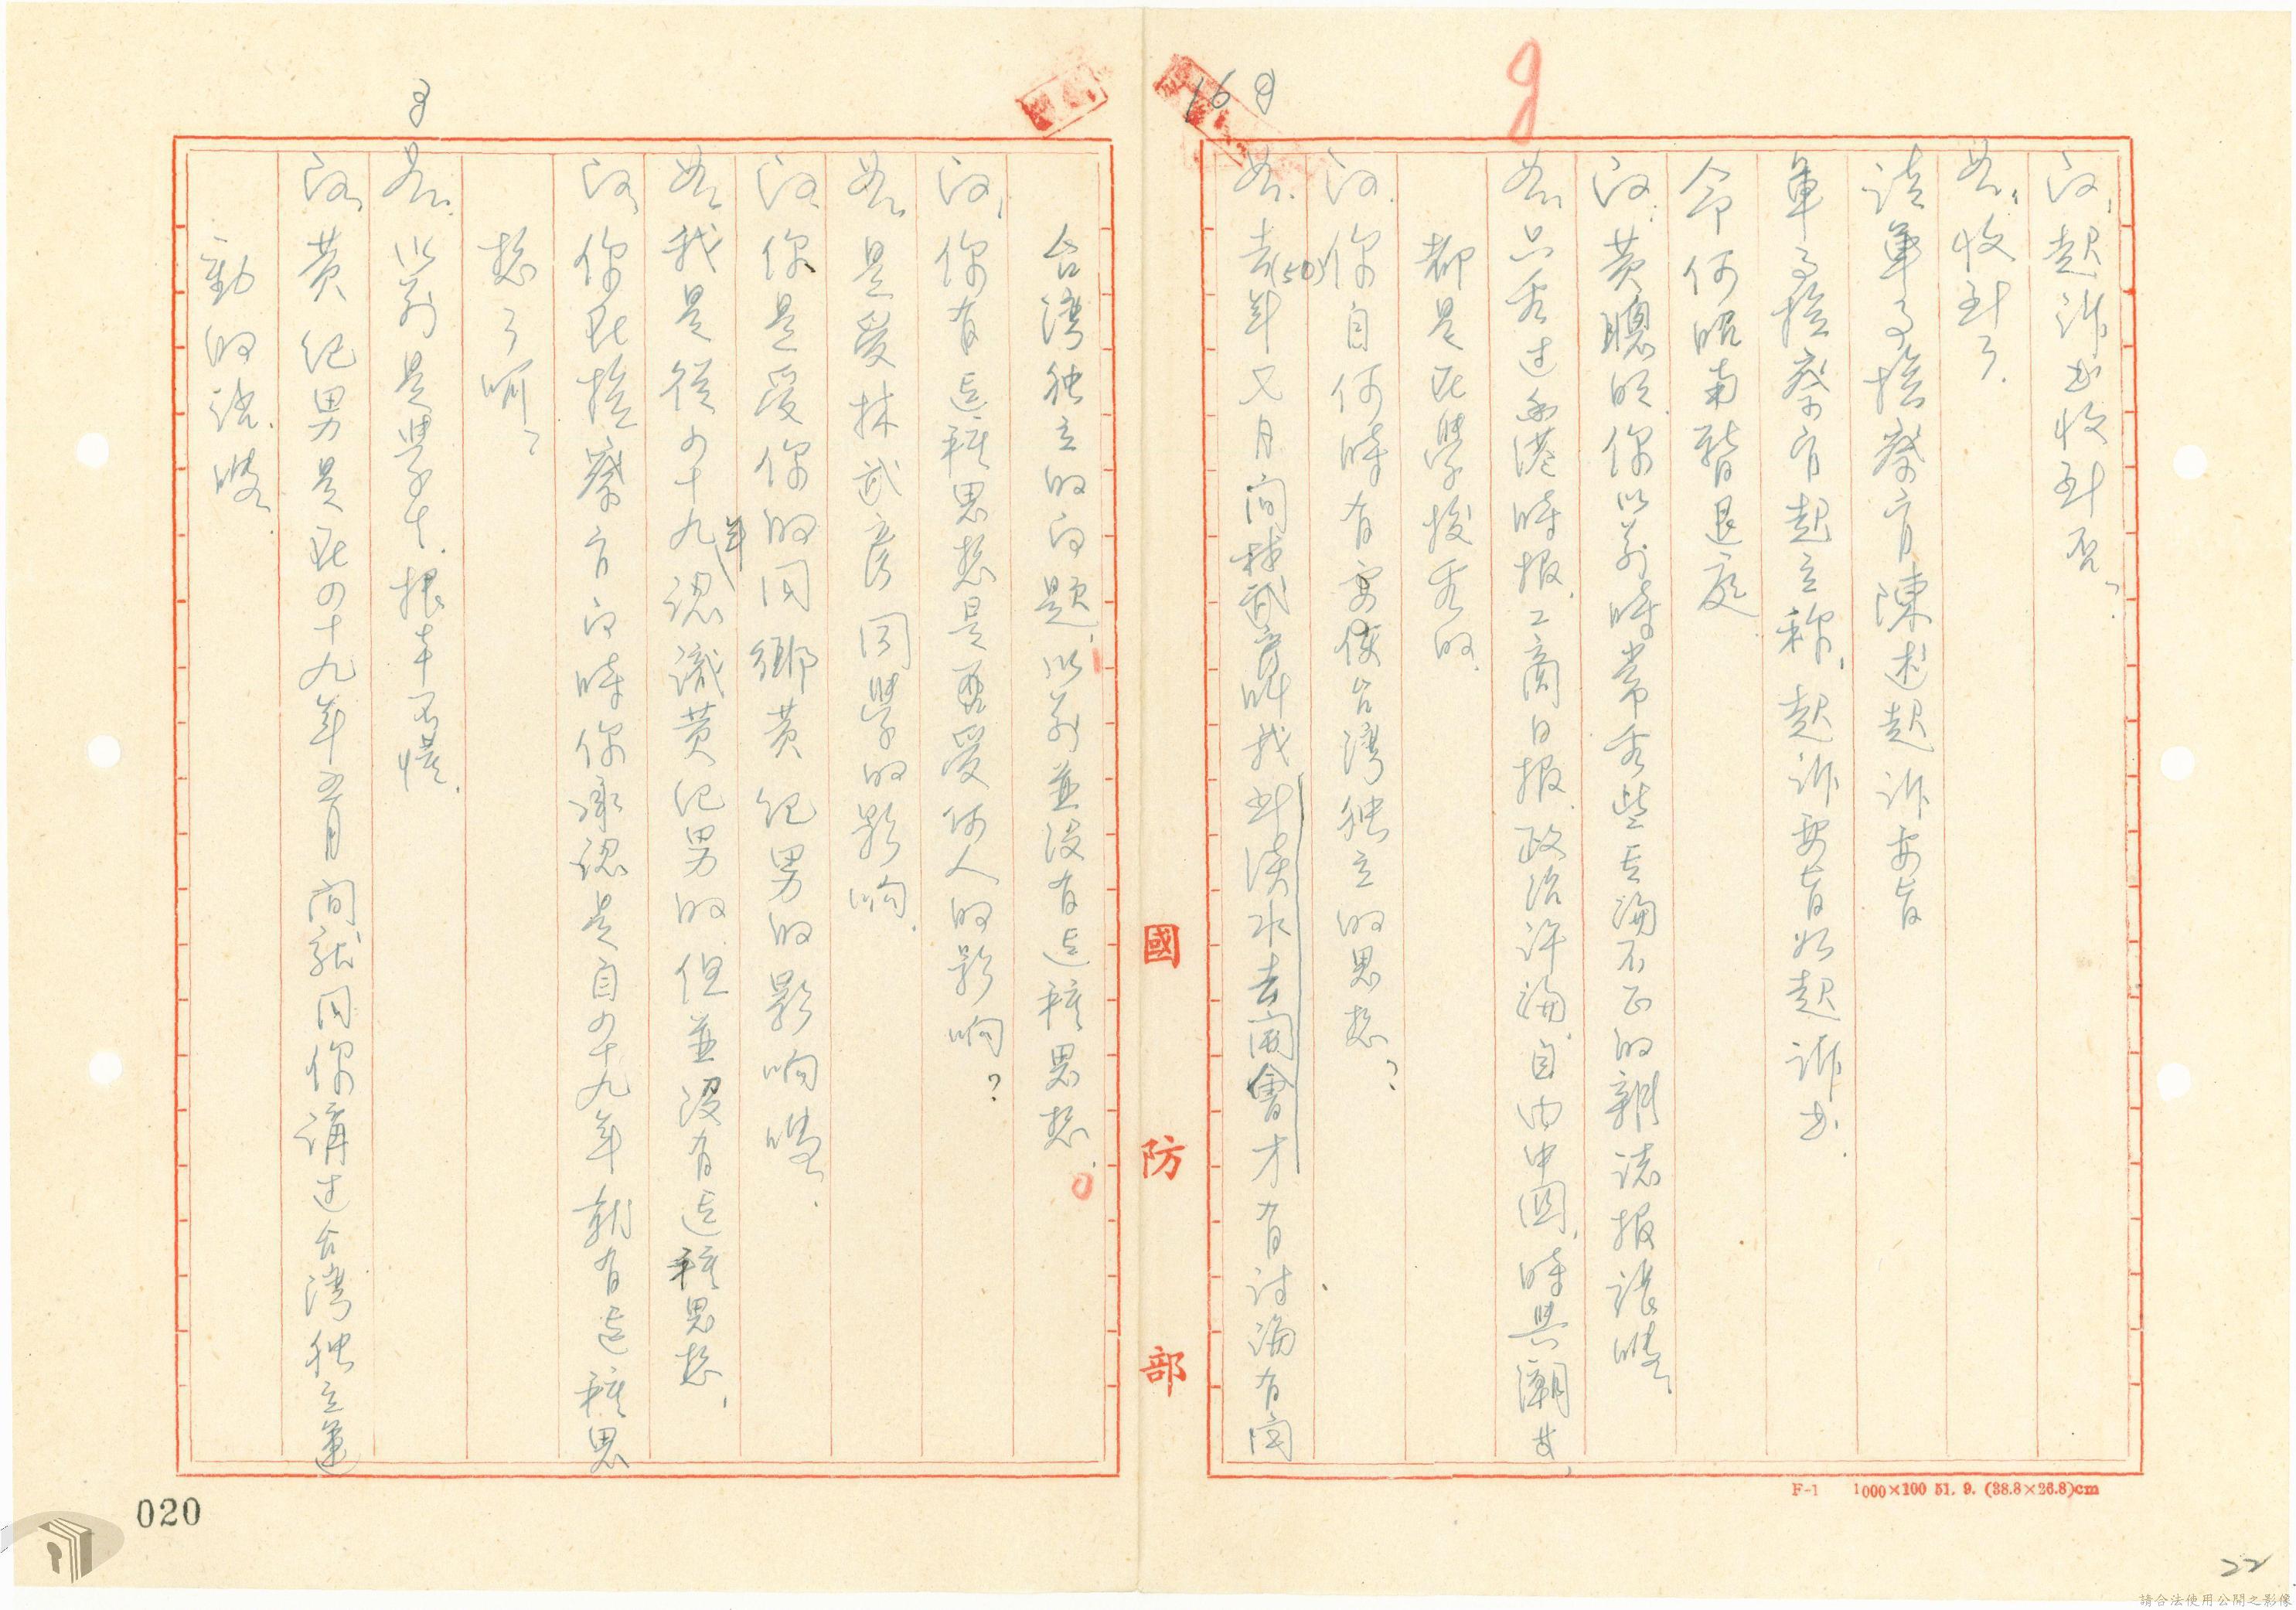 問、起訴书收到否?
答、收到了.
請軍事檢察官陳述起訴要旨
軍事檢察官起立称、起訴要旨如起訴书.
令何昭南暫退庭
問、黃聰明你以前時常看些言論不正的雜誌报張嗎.
答、只看过香港時报、工商日报、政治評論、自由中國、時與潮女、
都是在學校看的.
問、你自何時有要使台湾独立的思想?
答、去(50)年又月间林武彥叫我到淡水去開會才有討論有関
台湾独立的问题.以前並没有這種思想.
問、你有這種思想是受何人的影响?
答、是受林武彥同學的影响.
問、你是受你的同鄉黃紀男的影响嗎.
答、我是從四十九年認識黃紀男的但並没有這種思想.
問、你在檢察官问時你承認是自四十九年就有這種思
想了啊?
答、以前是學生.根本不懂.
問、黃紀男是在四十九年五月间就同你講过台湾独立運
動的話嗎.
國防部
F-1 1000×100 51. 9. (38.8×26.8)cm
020
16
22
請合法使用公開之影像